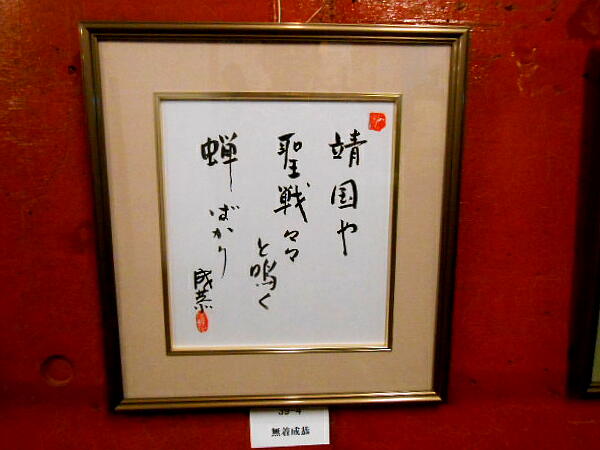 靖国や
聖戦々々
と鳴く
蝉
ばかり
成恭
39-4
無着成恭